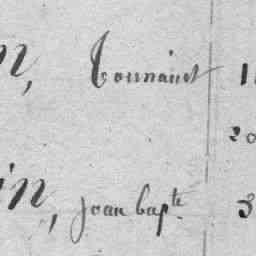 n, Toussaint 1
20
in, jean bapte. 3